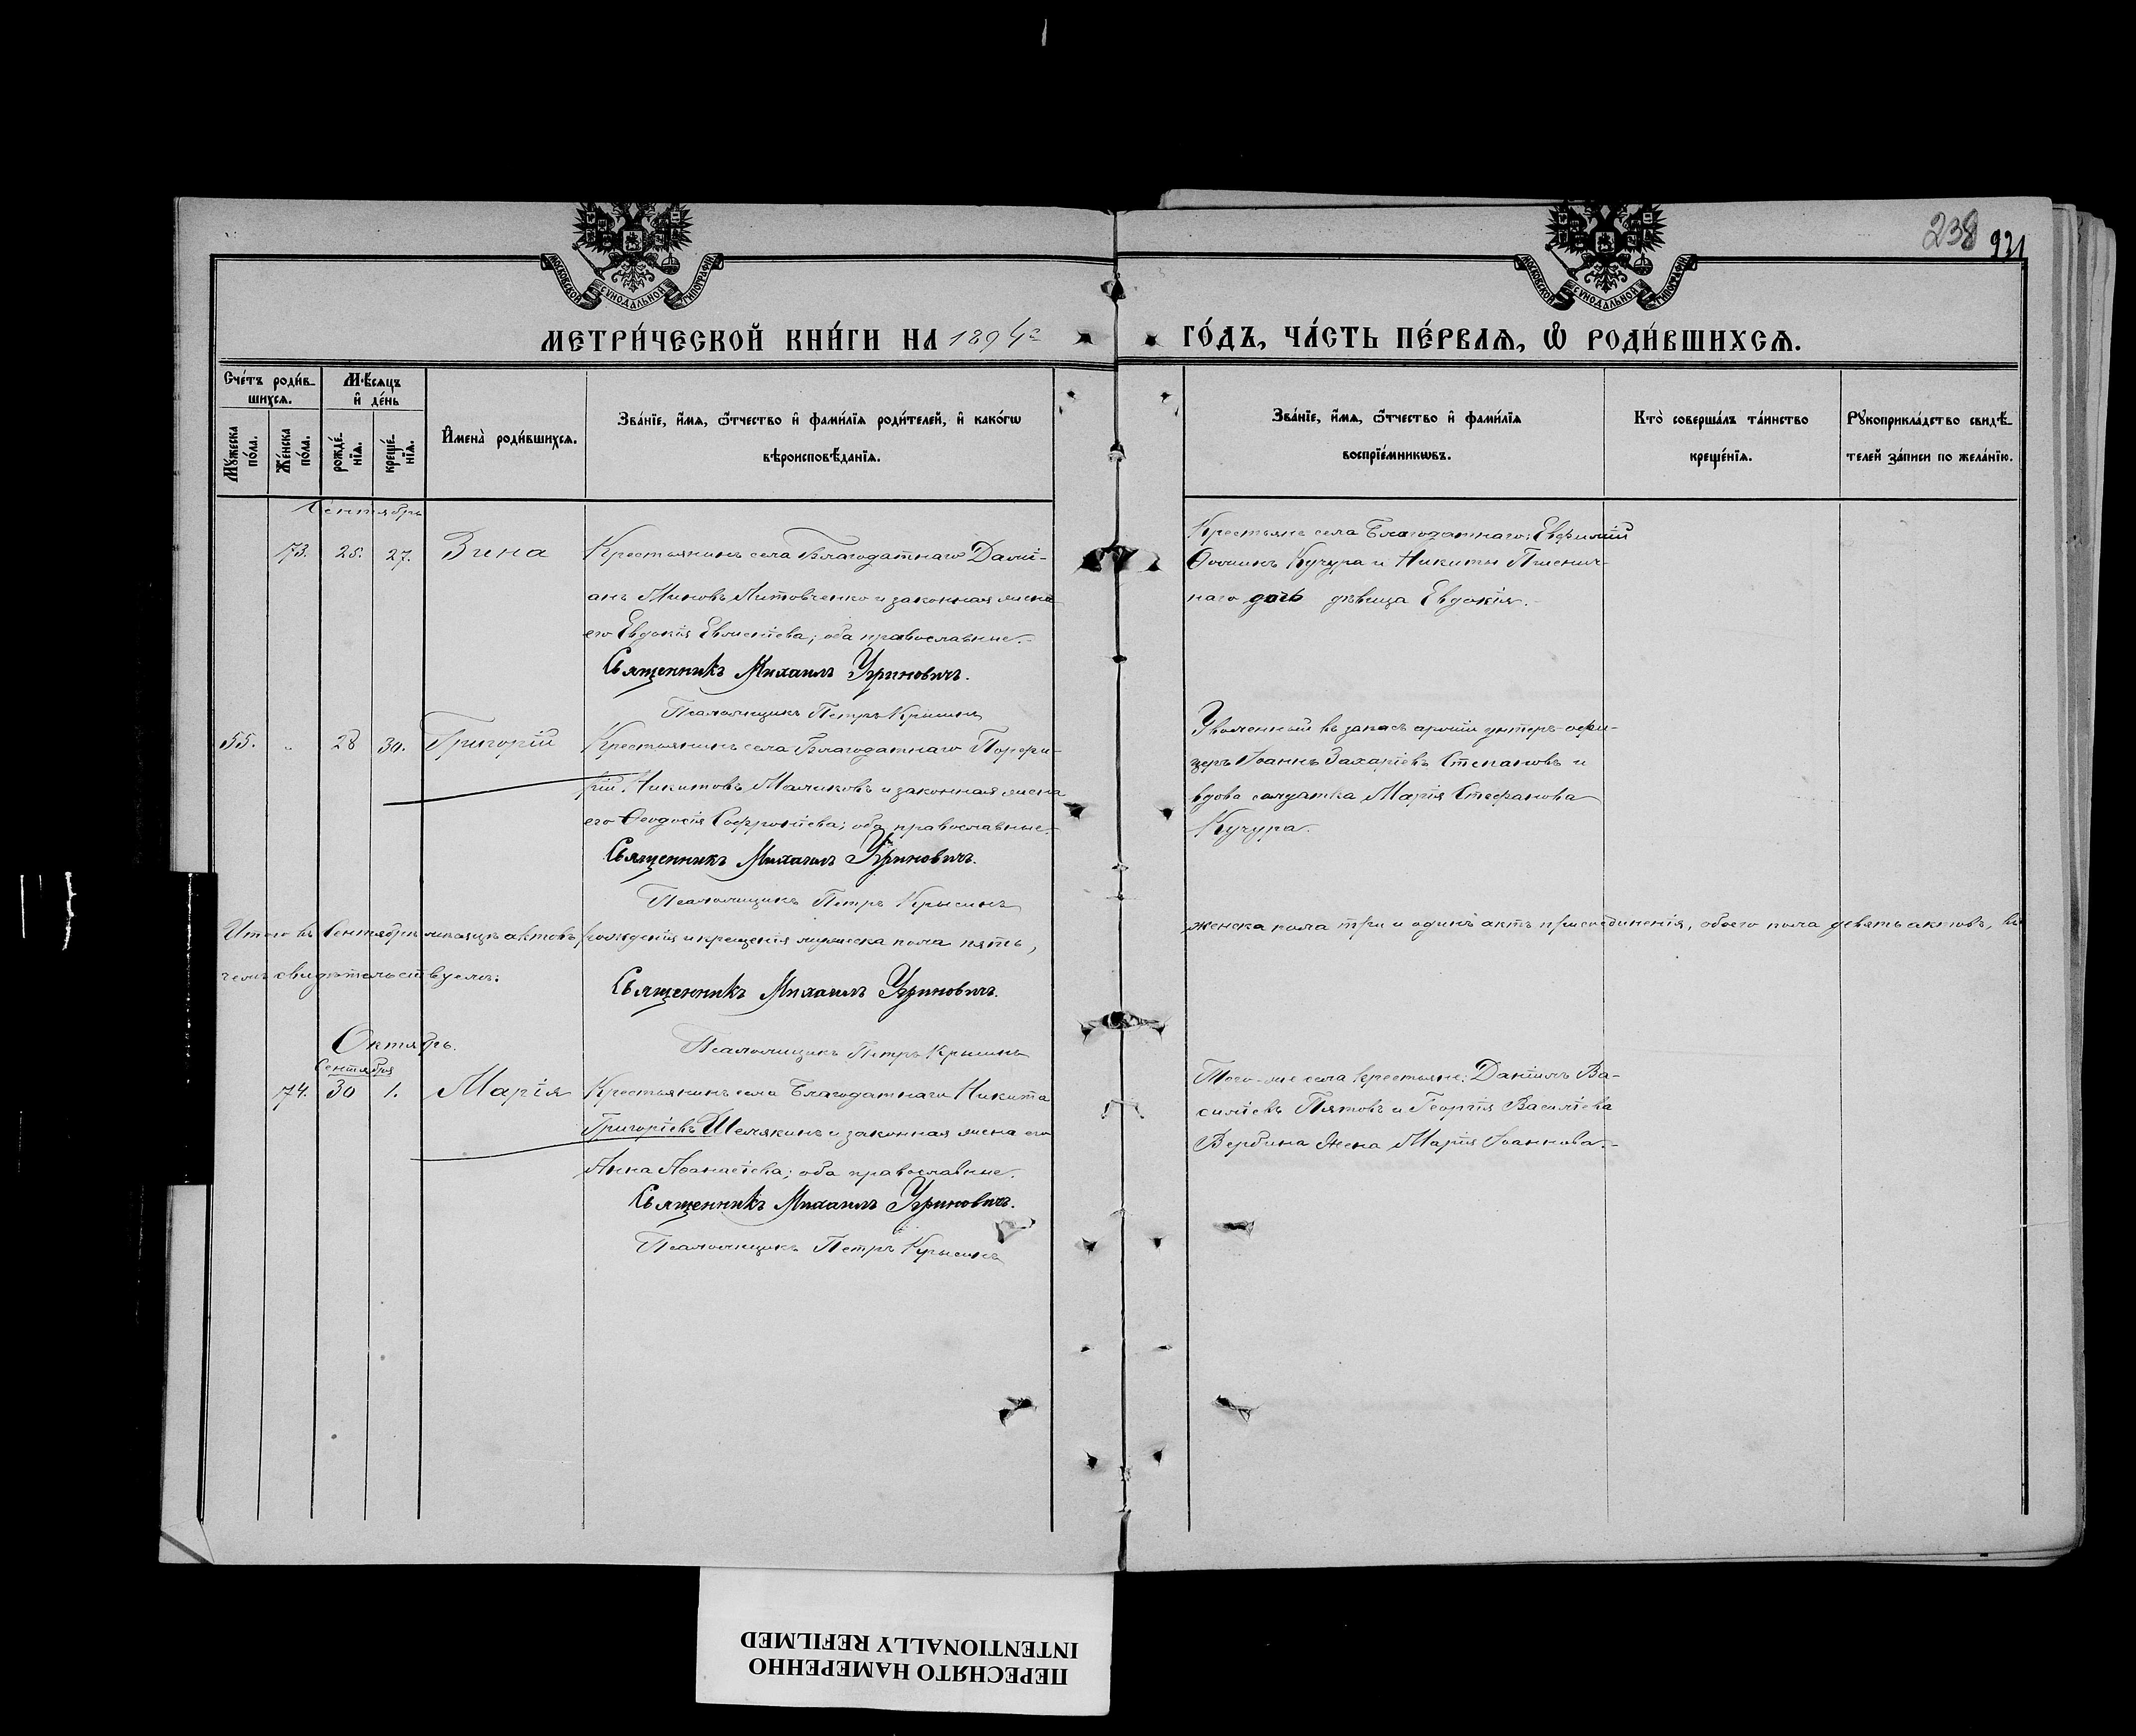 238 921
МОСКОВСКОЙ СУНОДАЛЬНОЙ ТИПОГРАФІИ
МОСКОВСКОЙ СУНОДАЛЬНОЙ ТИПОГРАФІИ
МЕТРИ́ЧЕСКОЙ КНИ́ГИ НА 1894 ГО́ДЪ, ЧА́СТЬ ПЕ́РВАѦ, Ѡ҆ РОДИ́ВШИХСѦ.
Сче́тъ роди́в-
шихсѧ.
Мꙋ́жеска по́ла.
Же́нска по́ла.
Мѣ́сѧцъ
и҆ де́нь
рожде́-
нїѧ.
креще́-
нїѧ.
И҆мена̀ роди́вшихсѧ.
Зва́нїе, и҆́мѧ, ѻ҆́тчество и҆ фами́лїѧ роди́телей, и҆ како́гѡ
вѣроисповѣ́данїѧ.
Зва́нїе, и҆́мѧ, ѻ҆́тчество и҆ фами́лїѧ
воспрїе́мникѡвъ.
Кто̀ соверша́лъ та́инство
креще́нїѧ.
Рꙋкоприкла́дство свидѣ́-
телей за́писи по жела́нїю.
Сентябрь
73. 25. 27. Зина
Крестьянинъ села Благодатнаго Дамі-
анъ Миновъ Литовченко и законная жена
его Евдокія Евменіева; оба православные.
Священникъ Михаилъ Угриновичъ.
Псаломщикъ Петръ Крысинъ
Крестьяне села Благодатнаго: Евфимій
Ѳоминъ Кучура и Никиты Пшенич-
наго дочь дѣвица Евдокія.
55. " 28 30. Григорій
Крестьянинъ села Благодатнаго Порфи-
рій Никитовъ Маликовъ и законная жена
его Ѳеодосія Софроніева; оба православные.
Священникъ Михаилъ Угриновичъ.
Псаломщикъ Петръ Крысинъ
Уволенный въ запасъ арміи унтеръ-офи-
церъ Іоаннъ Захаріевъ Степановъ и
вдова солдатка Марія Стефанова
Кучура.
Итого въ Сентябрѣ мѣсяцѣ актовъ рожденія и крещенія мужеска пола пять,
женска пола три и одинъ актъ присоединенія, обоего пола девять актовъ, въ
чемъ свидѣтельствуемъ:
Священникъ Михаилъ Угриновичъ.
Псаломщикъ Петръ Крысинъ
Октябрь.
Сентября
74. 30 1. Марія
Крестьянинъ села Благодатнаго Никита
Григоріевъ Шемякинъ и законная жена его
Анна Аѳанасіева; оба православные.
Священникъ Михаилъ Угриновичъ.
Псаломщикъ Петръ Крысинъ
Того-же села крестьяне: Даніилъ Ва-
силіевъ Пятовъ и Георгія Василіева
Вербина жена Марія Іоаннова.
ПЕРЕСНЯТО НАМЕРЕННО
INTENTIONALLY REFILMED